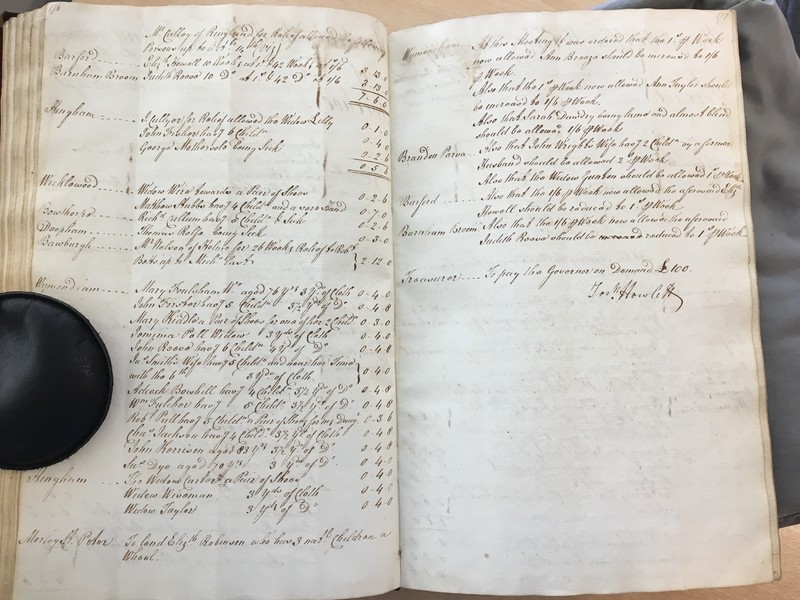 176
Mr. Culley of Ringland for Relief allowed
Persons up to
Barford Eliz. Howell 10 Weeks at 1s & 42 Weeks at 1/6 3.13.0
Barnham Broom Judith Reeve 10 Do. at 1s & 42 Do. at 1/6 3.13.0
7.6.0
Hingham for Relief allowed the Widow Lilly 0.1.0
John hav'g 6 Child'n 0.4.0
George Mothersole being Sick
0.5.6
Wicklewood Widow Wire towards a Pair of Shoes 0.2.6
Matthew Stubbs hav'g 4 Child'n and a sore Hand 0.7.0
Bowthorpe Rich'd hav'g 5 Child'n & Sick 0.2.6
Deopham Thomas Rolfe being Sick 0.3.0
Bawburgh Mr. Nelson of for 26 Weeks Relief to Rob't
Bets up to Mich's last } 2.12.0
Wymondham Mary Wo. aged 76 yrs 3 yds of Cloth 0.4.0
John hav'g 5 Child'n 3½ yds of Do. 0.4.8
Mary a Pair of Shoes for one of her 2 Child'n 0.3.0
Jemima Poll Widow 3 yds of Cloth 0.4.0
John Reeve hav'g 6 Child'n 4 yds of Do. 0.4.8
Jas. Smith's Wife hav'g 5 Child'n and near her Time
with the 6th 3 yds of Cloth } 0.4.0
Adcock Bowhill hav'g 4 Child'n 3½ yds of Do. 0.4.8
Wm. Fulcher hav'g 5 Child'n 3½ yds of Do. 0.4.8
Rob't Pull hav'g 5 Child'n a Pair of Shoes for my Daug'r 0.3.6
Chas. Jackson hav'g 4 Child'n 3½ yds of Cloth 0.4.8
John Harrison aged 83 yrs 3½ yds of Do. 0.4.8
Dye aged 70 yrs 3 yds of Do. 0.4.0
Hingham The Widow Carter a Pair of Shoes 0.4.0
Widow Wiseman 3 yds of Cloth 0.4.0
Widow Taylor 3 yds of Do. 0.4.0
Morley St. Peter To lend Eliz'th Robinson who has 3 Children a
Wheel.
177
Wymondham At this Meeting it was ordered that the 1s p Week
now allowed Ann Breeze should be increased to 1/6
p Week.
Also that the 1s p Week now allowed Ann Taylor should
be increased to 1/6 p Week.
Also that Sarah Dundry being lame and almost blind
should be allowed 1/6 p Week
Brandon Parva Also that John Wright's Wife hav'g 2 Child'n by a former
Husband should be allowed 2s p Week
Also that the Widow Gunton should be allowed 1s p Week
Barford Also that the 1/6 p Week now allowed the aforesaid Eliz'th
Howell should be reduced to 1s p Week
Barnham Broom Also that the 1/6 p Week now allow'd the aforesaid
Judith Reeve should be reduced to 1s p Week
Treasurer To pay the Governor on Demand £100.
Jos. Howlett